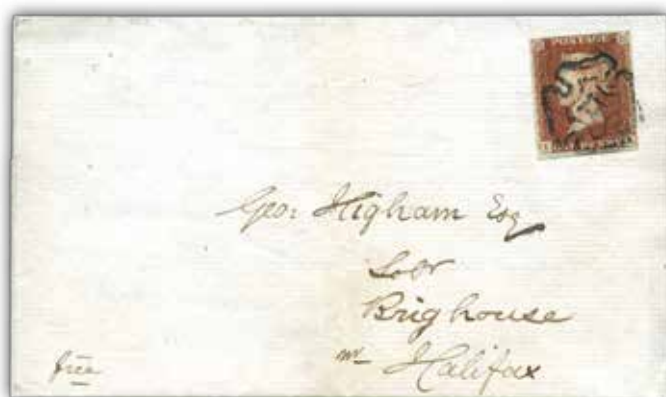 POSTAGE
Geo: Higham Esq
Solr
Brighouse
nr Halifax
free